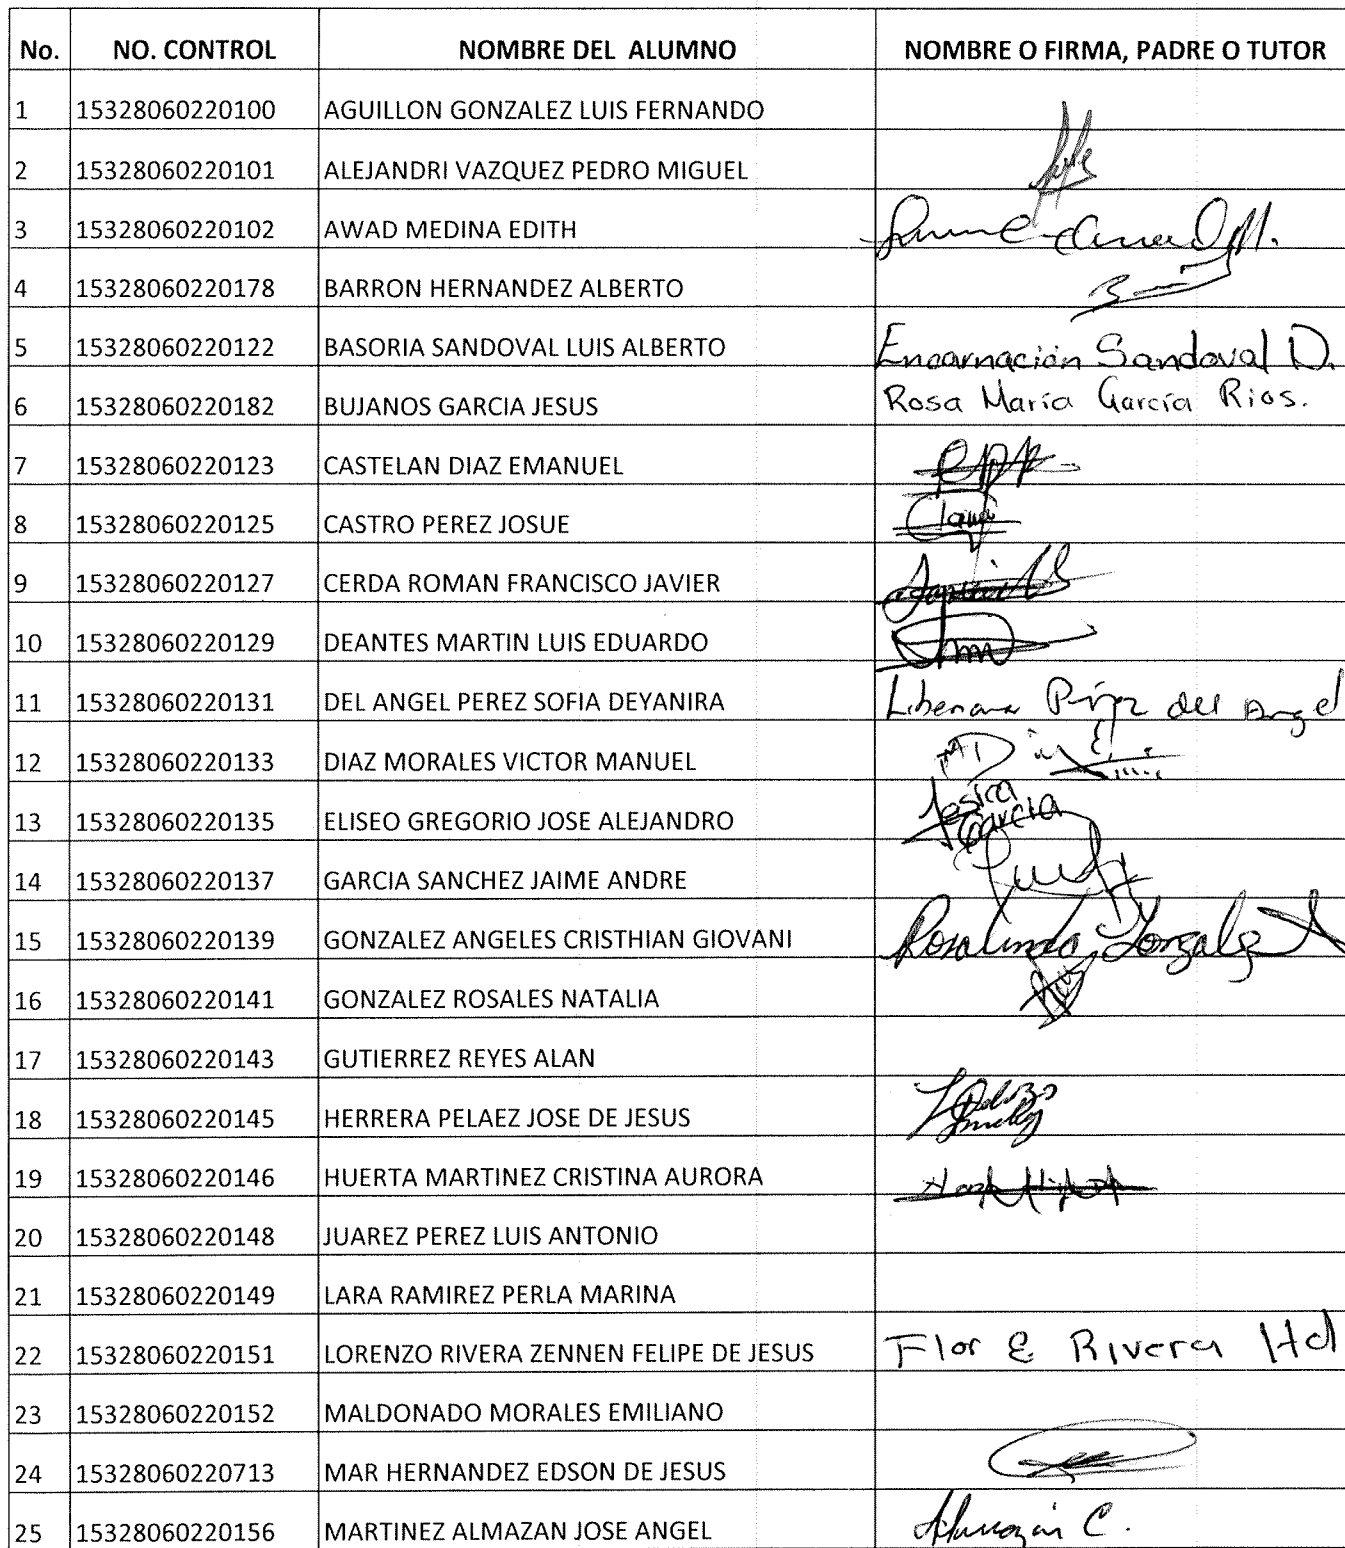 No. NO. CONTROL NOMBRE DEL ALUMNO NOMBRE O FIRMA, PADRE O TUTOR
1 15328060220100 AGUILLON GONZALEZ LUIS FERNANDO
2 15328060220101 ALEJANDRI VAZQUEZ PEDRO MIGUEL
3 15328060220102 AWAD MEDINA EDITH
4 15328060220178 BARRON HERNANDEZ ALBERTO
5 15328060220122 BASORIA SANDOVAL LUIS ALBERTO Encarnación Sandoval D.
6 15328060220182 BUJANOS GARCIA JESUS Rosa María García Rios.
7 15328060220123 CASTELAN DIAZ EMANUEL
8 15328060220125 CASTRO PEREZ JOSUE
9 15328060220127 CERDA ROMAN FRANCISCO JAVIER
10 15328060220129 DEANTES MARTIN LUIS EDUARDO
11 15328060220131 DEL ANGEL PEREZ SOFIA DEYANIRA del Angel
12 15328060220133 DIAZ MORALES VICTOR MANUEL
13 15328060220135 ELISEO GREGORIO JOSE ALEJANDRO Jesica Garcia
14 15328060220137 GARCIA SANCHEZ JAIME ANDRE
15 15328060220139 GONZALEZ ANGELES CRISTHIAN GIOVANI Rosalinda Gonzalez A
16 15328060220141 GONZALEZ ROSALES NATALIA
17 15328060220143 GUTIERREZ REYES ALAN
18 15328060220145 HERRERA PELAEZ JOSE DE JESUS
19 15328060220146 HUERTA MARTINEZ CRISTINA AURORA
20 15328060220148 JUAREZ PEREZ LUIS ANTONIO
21 15328060220149 LARA RAMIREZ PERLA MARINA
22 15328060220151 LORENZO RIVERA ZENNEN FELIPE DE JESUS Flor E Rivera Hd
23 15328060220152 MALDONADO MORALES EMILIANO
24 15328060220713 MAR HERNANDEZ EDSON DE JESUS
25 15328060220156 MARTINEZ ALMAZAN JOSE ANGEL Almazán C.